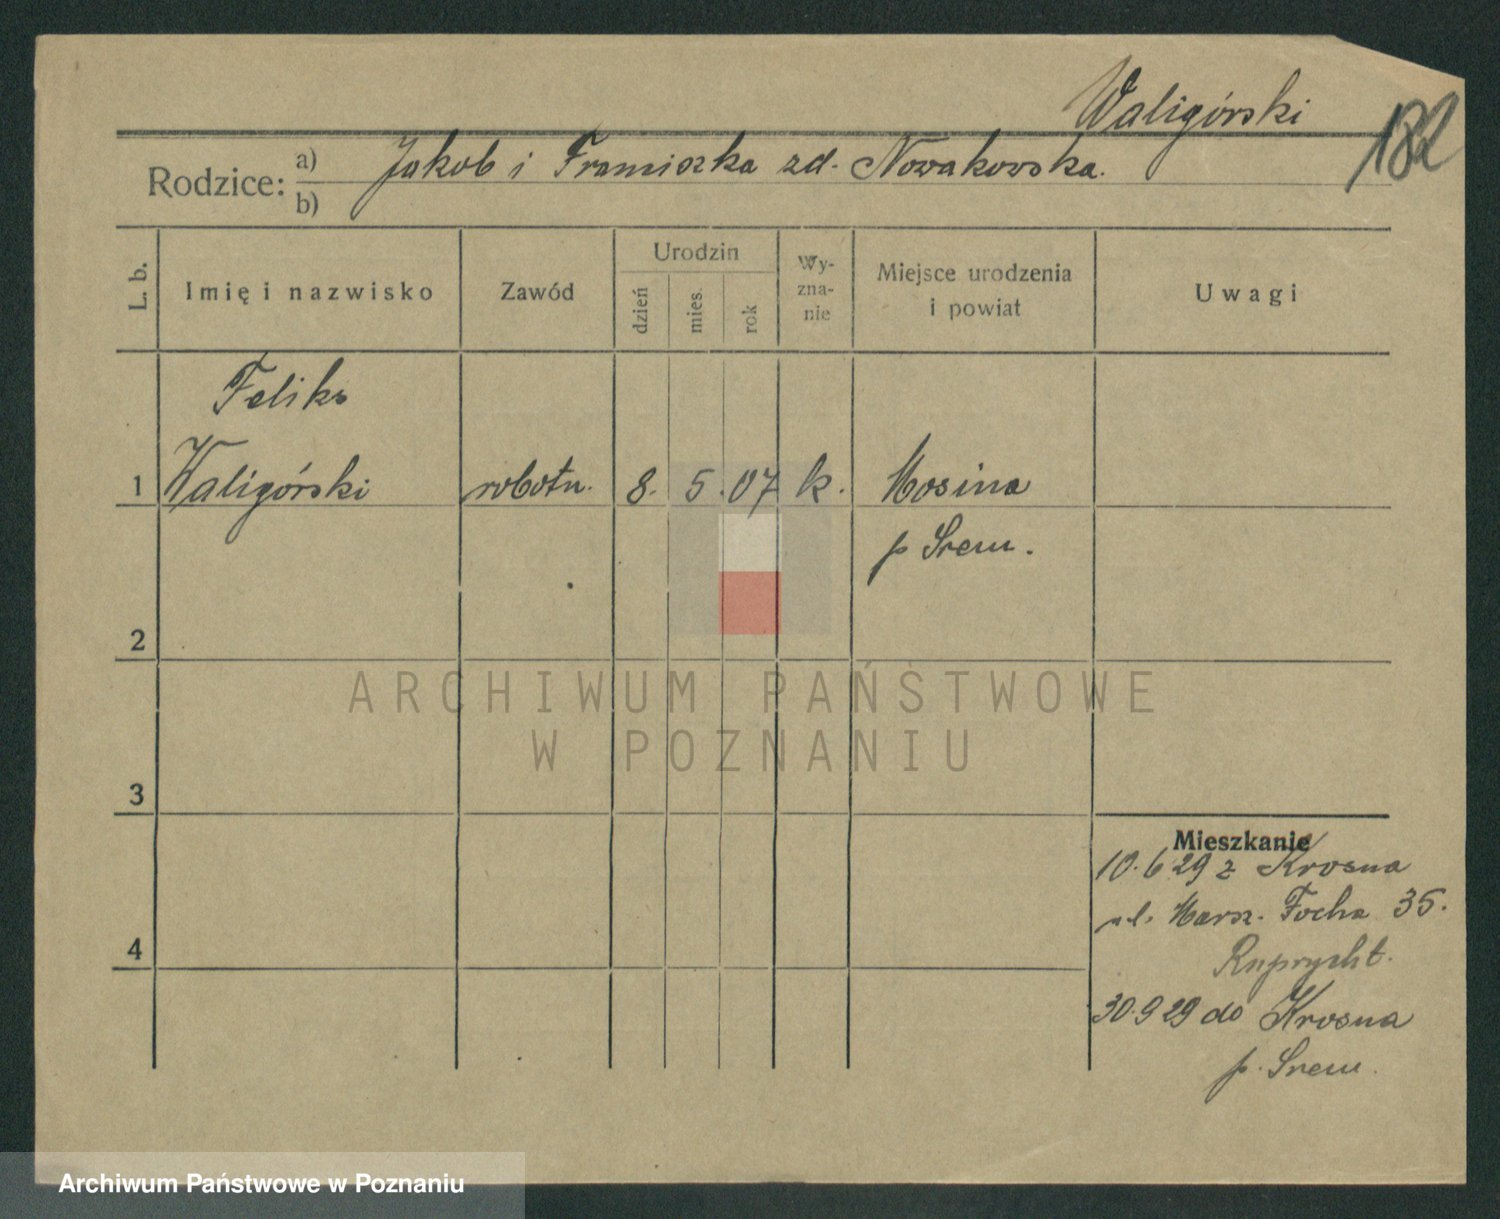 Waligórski
182
Rodzice: a) Jakob i Franciszka zd. Nowakowska.
b)
L. b. Imię i nazwisko Zawód Urodzin dzień mies. rok Wyznanie Miejsce urodzenia i powiat Uwagi
Feliks
1 Waligórski robotn. 8. 5. 07 k. Mosina
p Srem.
2
ARCHIWUM PAŃSTWOWE
W POZNANIU
3
Mieszkanie
10.6 29 z Krosna
ul. Marsz. Focha 35.
4
30.9 29 do Krosna
p. Srem.
Archiwum Państwowe w Poznaniu